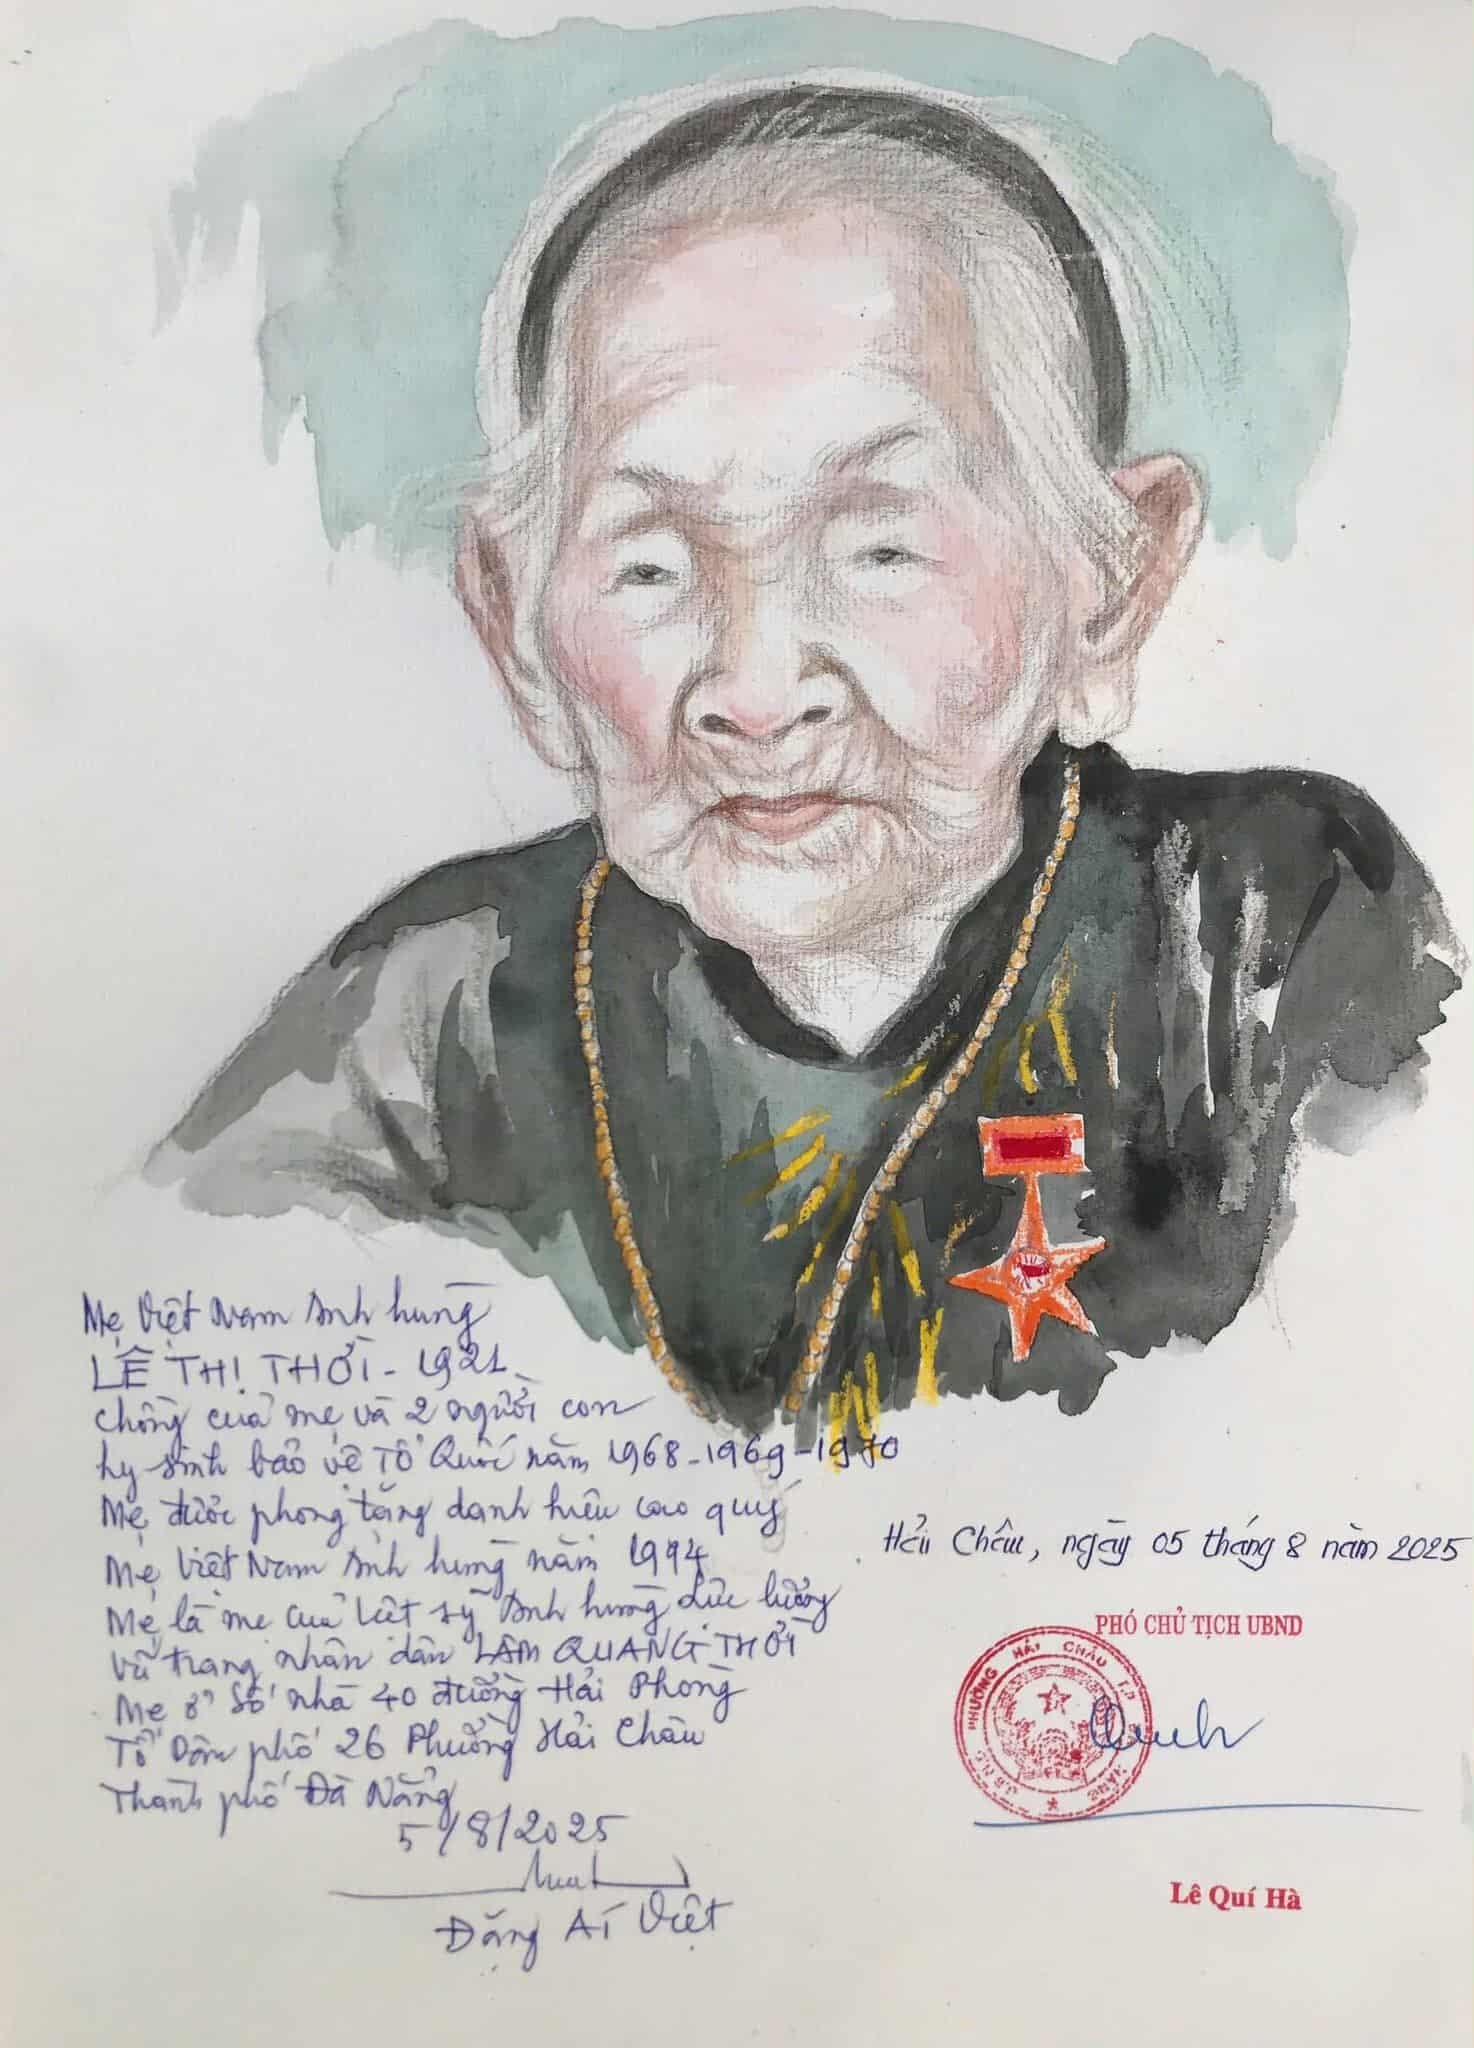 Mẹ Việt Nam Anh hùng
LÊ THỊ THỚI - 1921
chồng của mẹ và 2 người con
hy sinh bảo vệ Tổ Quốc năm 1968-1969-1970
Mẹ được phong tặng danh hiệu cao quý
Mẹ Việt Nam Anh hùng năm 1994
Mẹ là mẹ của Liệt sỹ Anh hùng Lực lượng
Vũ trang nhân dân LÂM QUANG THỚI
Mẹ ở Số nhà 40 đường Hải Phòng
Tổ Dân phố 26 Phường Hải Châu
Thành phố Đà Nẵng
5/8/2025
Đặng Ái Việt
Hải Châu, ngày 05 tháng 8 năm 2025
PHÓ CHỦ TỊCH UBND
PHƯỜNG HẢI CHÂU T.P
Lê Quí Hà